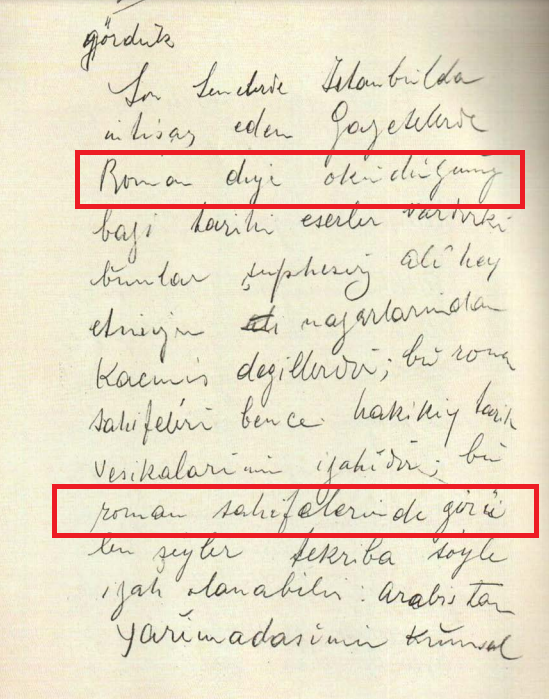 gördük
Son senelerde Istanbulda
intişar eden Gazetelerde
Roman diye okuduğumuz
bazi tarihi eserler vardırki
bunlar şüphesiz ali hey
etinizin nazarlarından
Kacmis degillerdir; bu roman
sahifeleri bence hakikiy tarih
vesikalarinin izahıdır; bu
roman sahifelerinde görü
len şeyler tekriba söyle
izah olanabilir: Arabistan
Yarimadasinin Kumsal